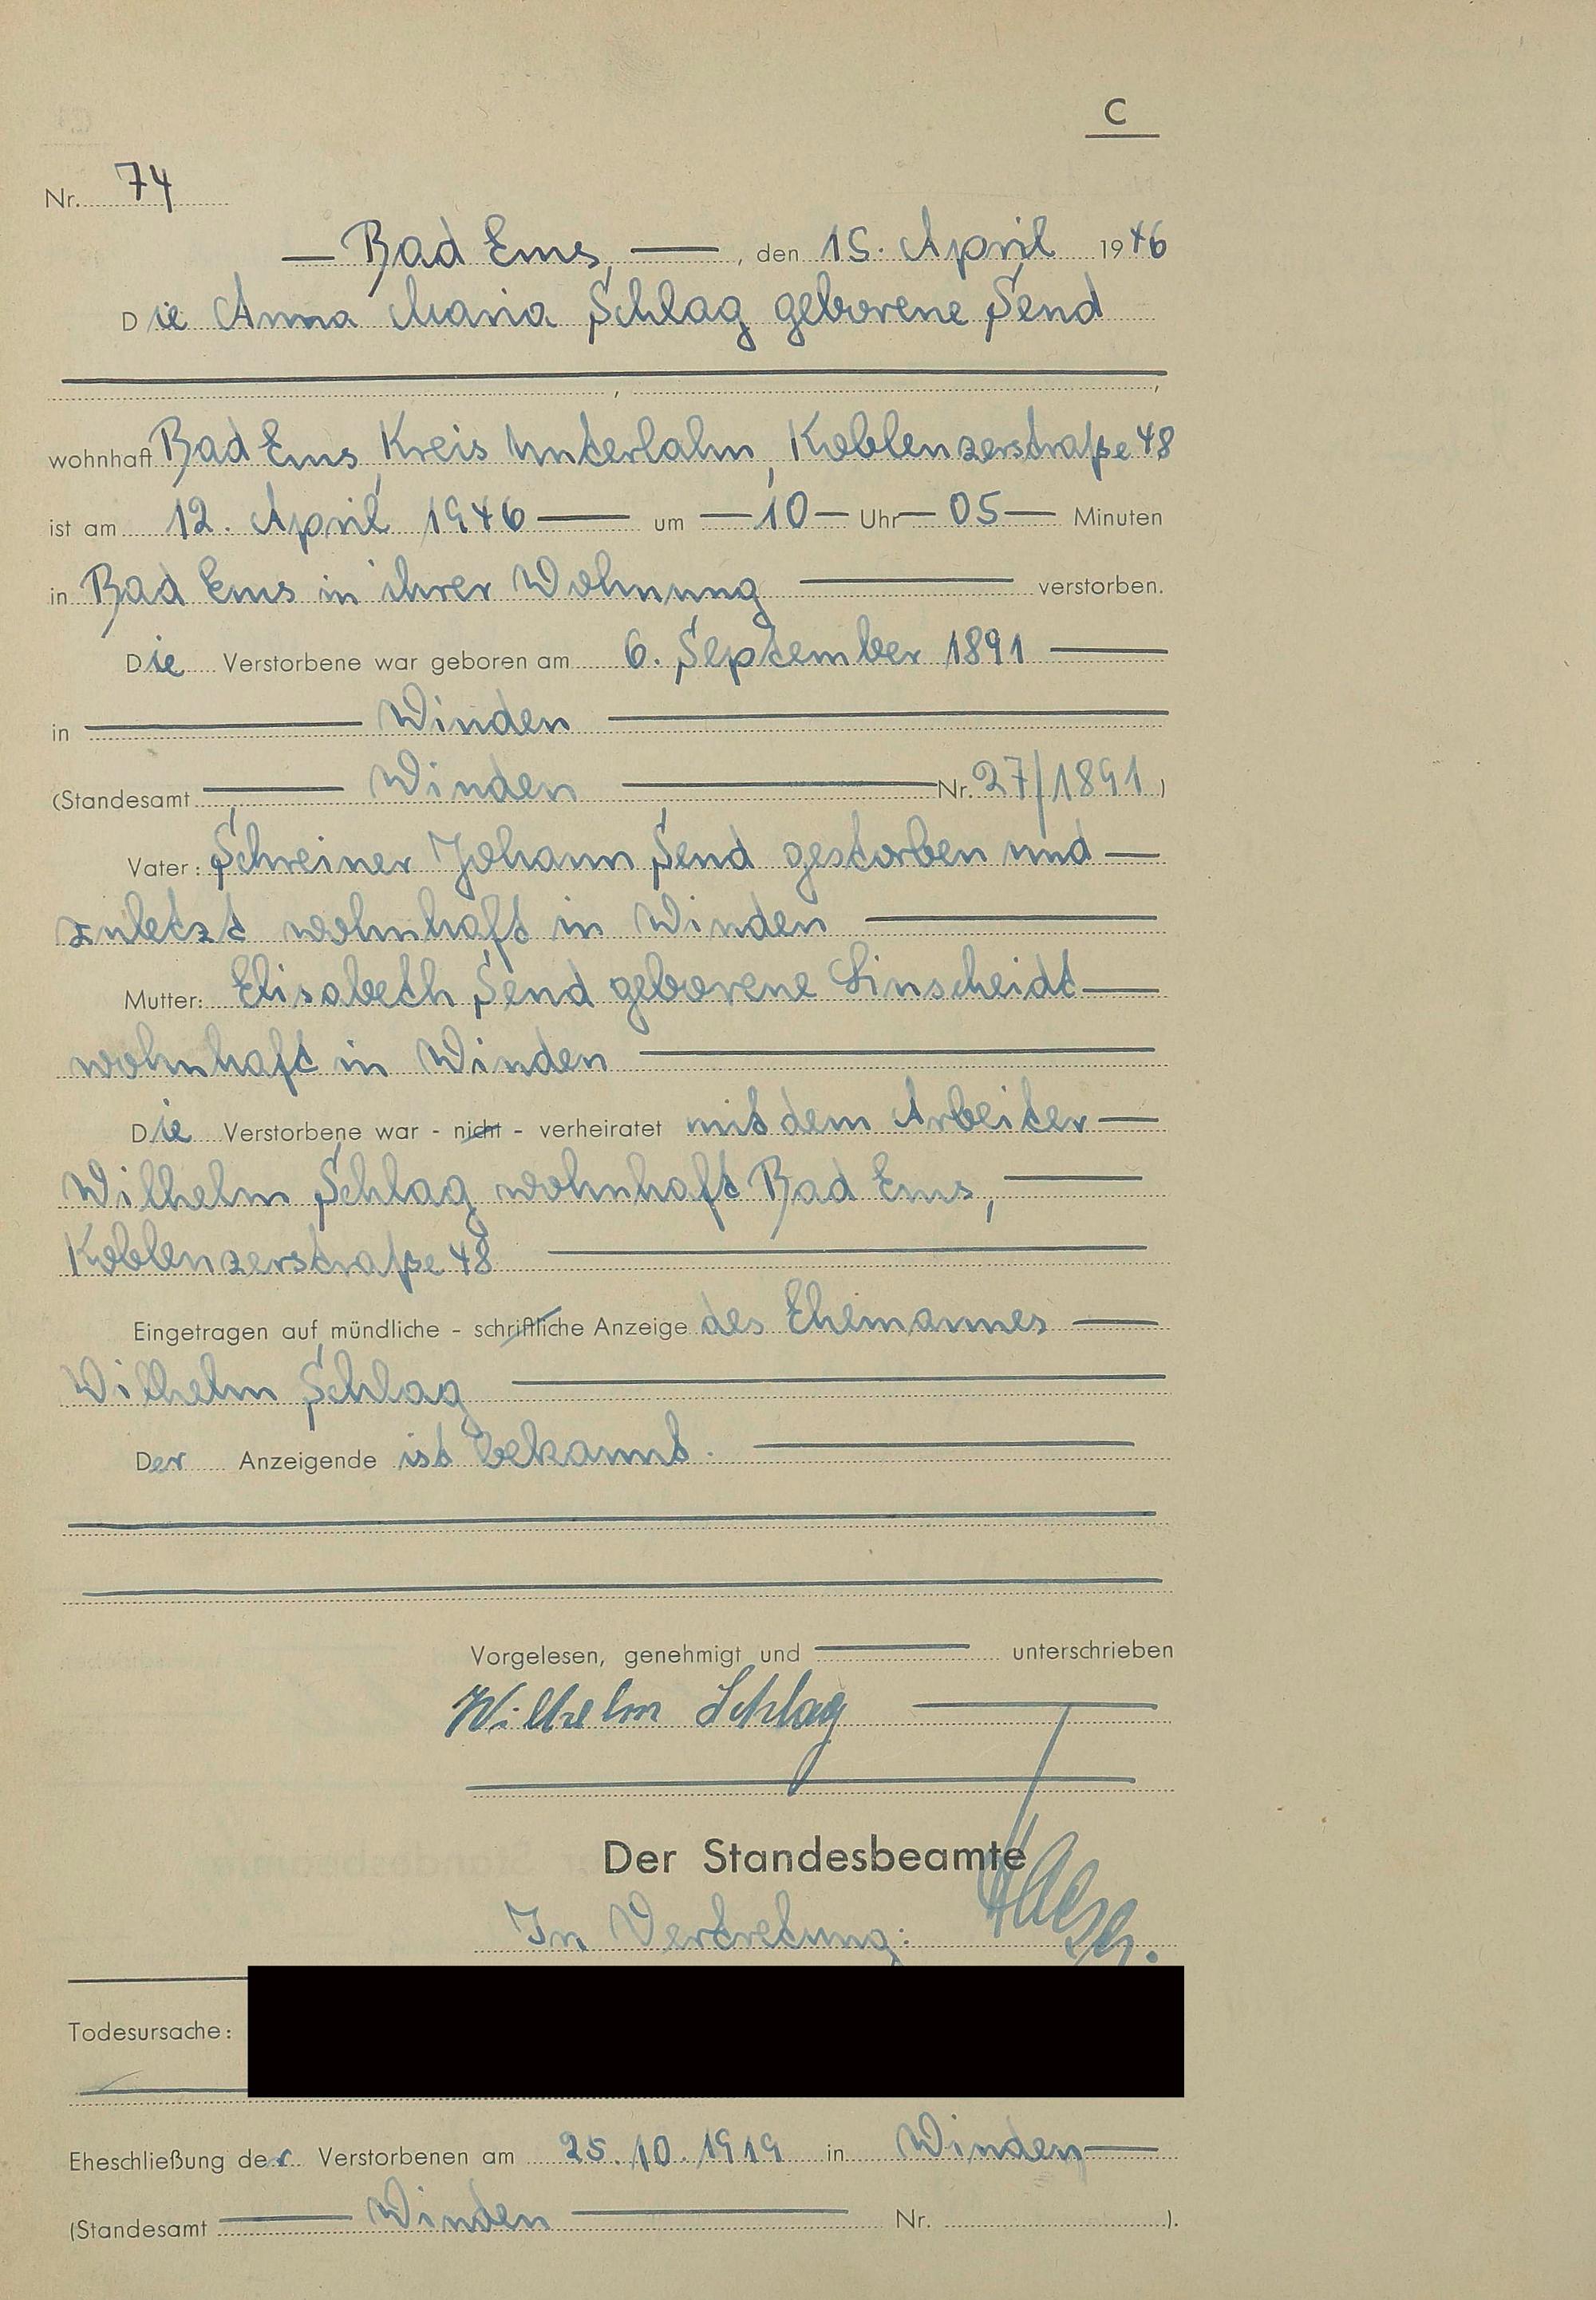 C
Nr. 74
Bad Ems, , den 15. April 1946
Die Anna Maria Schlag geborene Send
wohnhaft Bad Ems, Kreis Unterlahn, Koblenzerstraße 48
ist am 12. April 1946 um 10 Uhr 05 Minuten
in Bad Ems in ihrer Wohnung verstorben.
Die Verstorbene war geboren am 6. September 1891
in Winden
(Standesamt Winden Nr. 27/1891)
Vater: Schreiner Johann Send gestorben und
zuletzt wohnhaft in Winden
Mutter: Elisabeth Send geborene Linscheidt
wohnhaft in Winden
Die Verstorbene war - nicht - verheiratet mit dem Arbeiter
Wilhelm Schlag wohnhaft Bad Ems,
Koblenzerstraße 48
Eingetragen auf mündliche - schriftliche Anzeige des Ehemannes
Wilhelm Schlag
Der Anzeigende ist bekannt.
Vorgelesen, genehmigt und unterschrieben
Wilhelm Schlag
Der Standesbeamte
In Vertretung:
Todesursache:
Eheschließung der Verstorbenen am 25.10.1919 in Winden
(Standesamt Winden Nr. ).